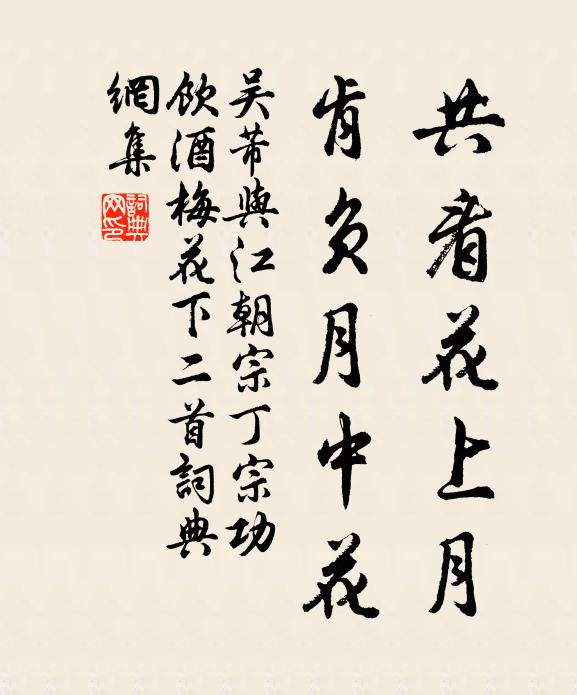 共看花上月
肯負月中花
吴芾與江朝宗丁宗功
飲酒梅花下二首詞典
網集
詞典網印